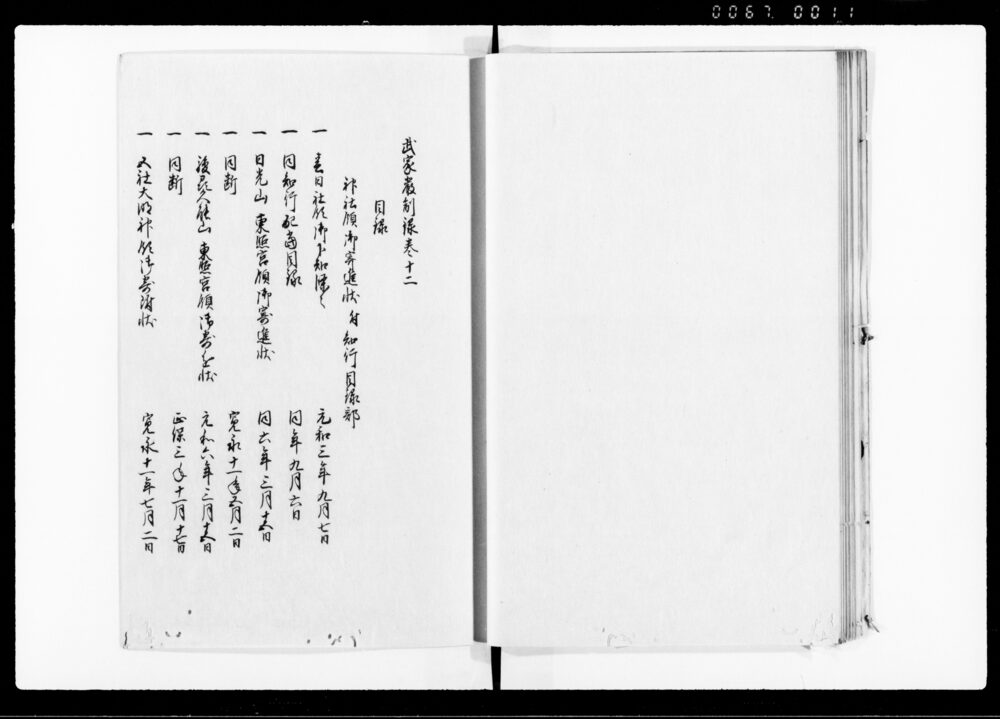 0067. 0011
武家嚴制録巻十二
目録
神社領御寄進状付知行目録部
一 春日社領御下知 元和三年九月七日
一 同知行配當目録 同年九月六日
一 日光山 東照宮領御寄進状 同六年三月十五日
一 同断 寛永十一年五月二日
一 山 東照宮領御寄進状 元和六年三月十五日
一 同断 正保三年十二月十七日
一 大明神領御寄附状 寛永十一年七月二日